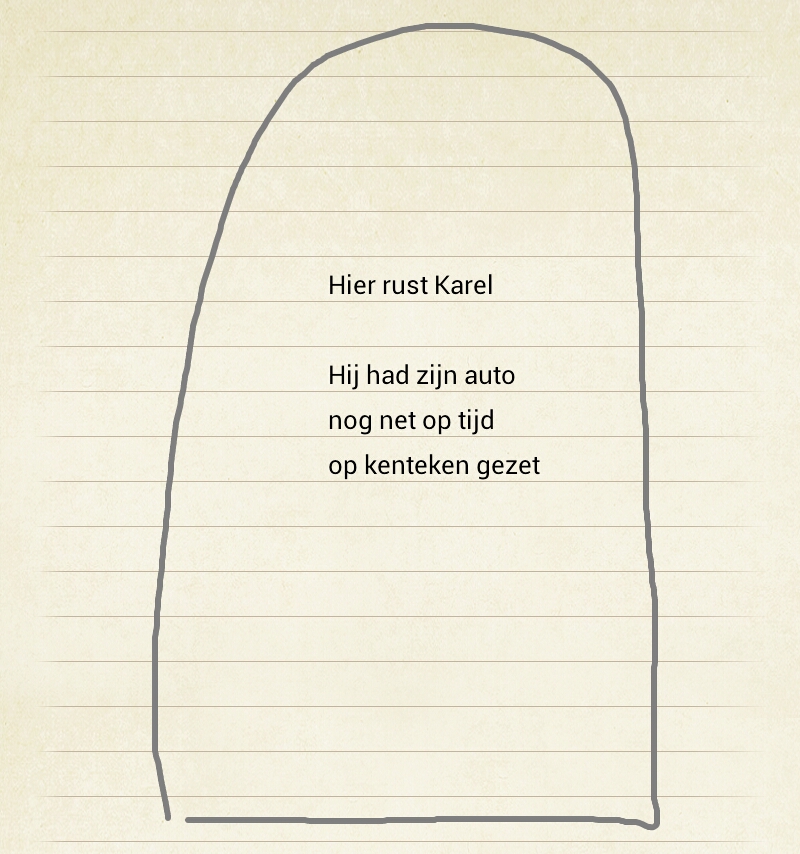 Hier rust Karel
Hij had zijn auto
nog net op tijd
op kenteken gezet